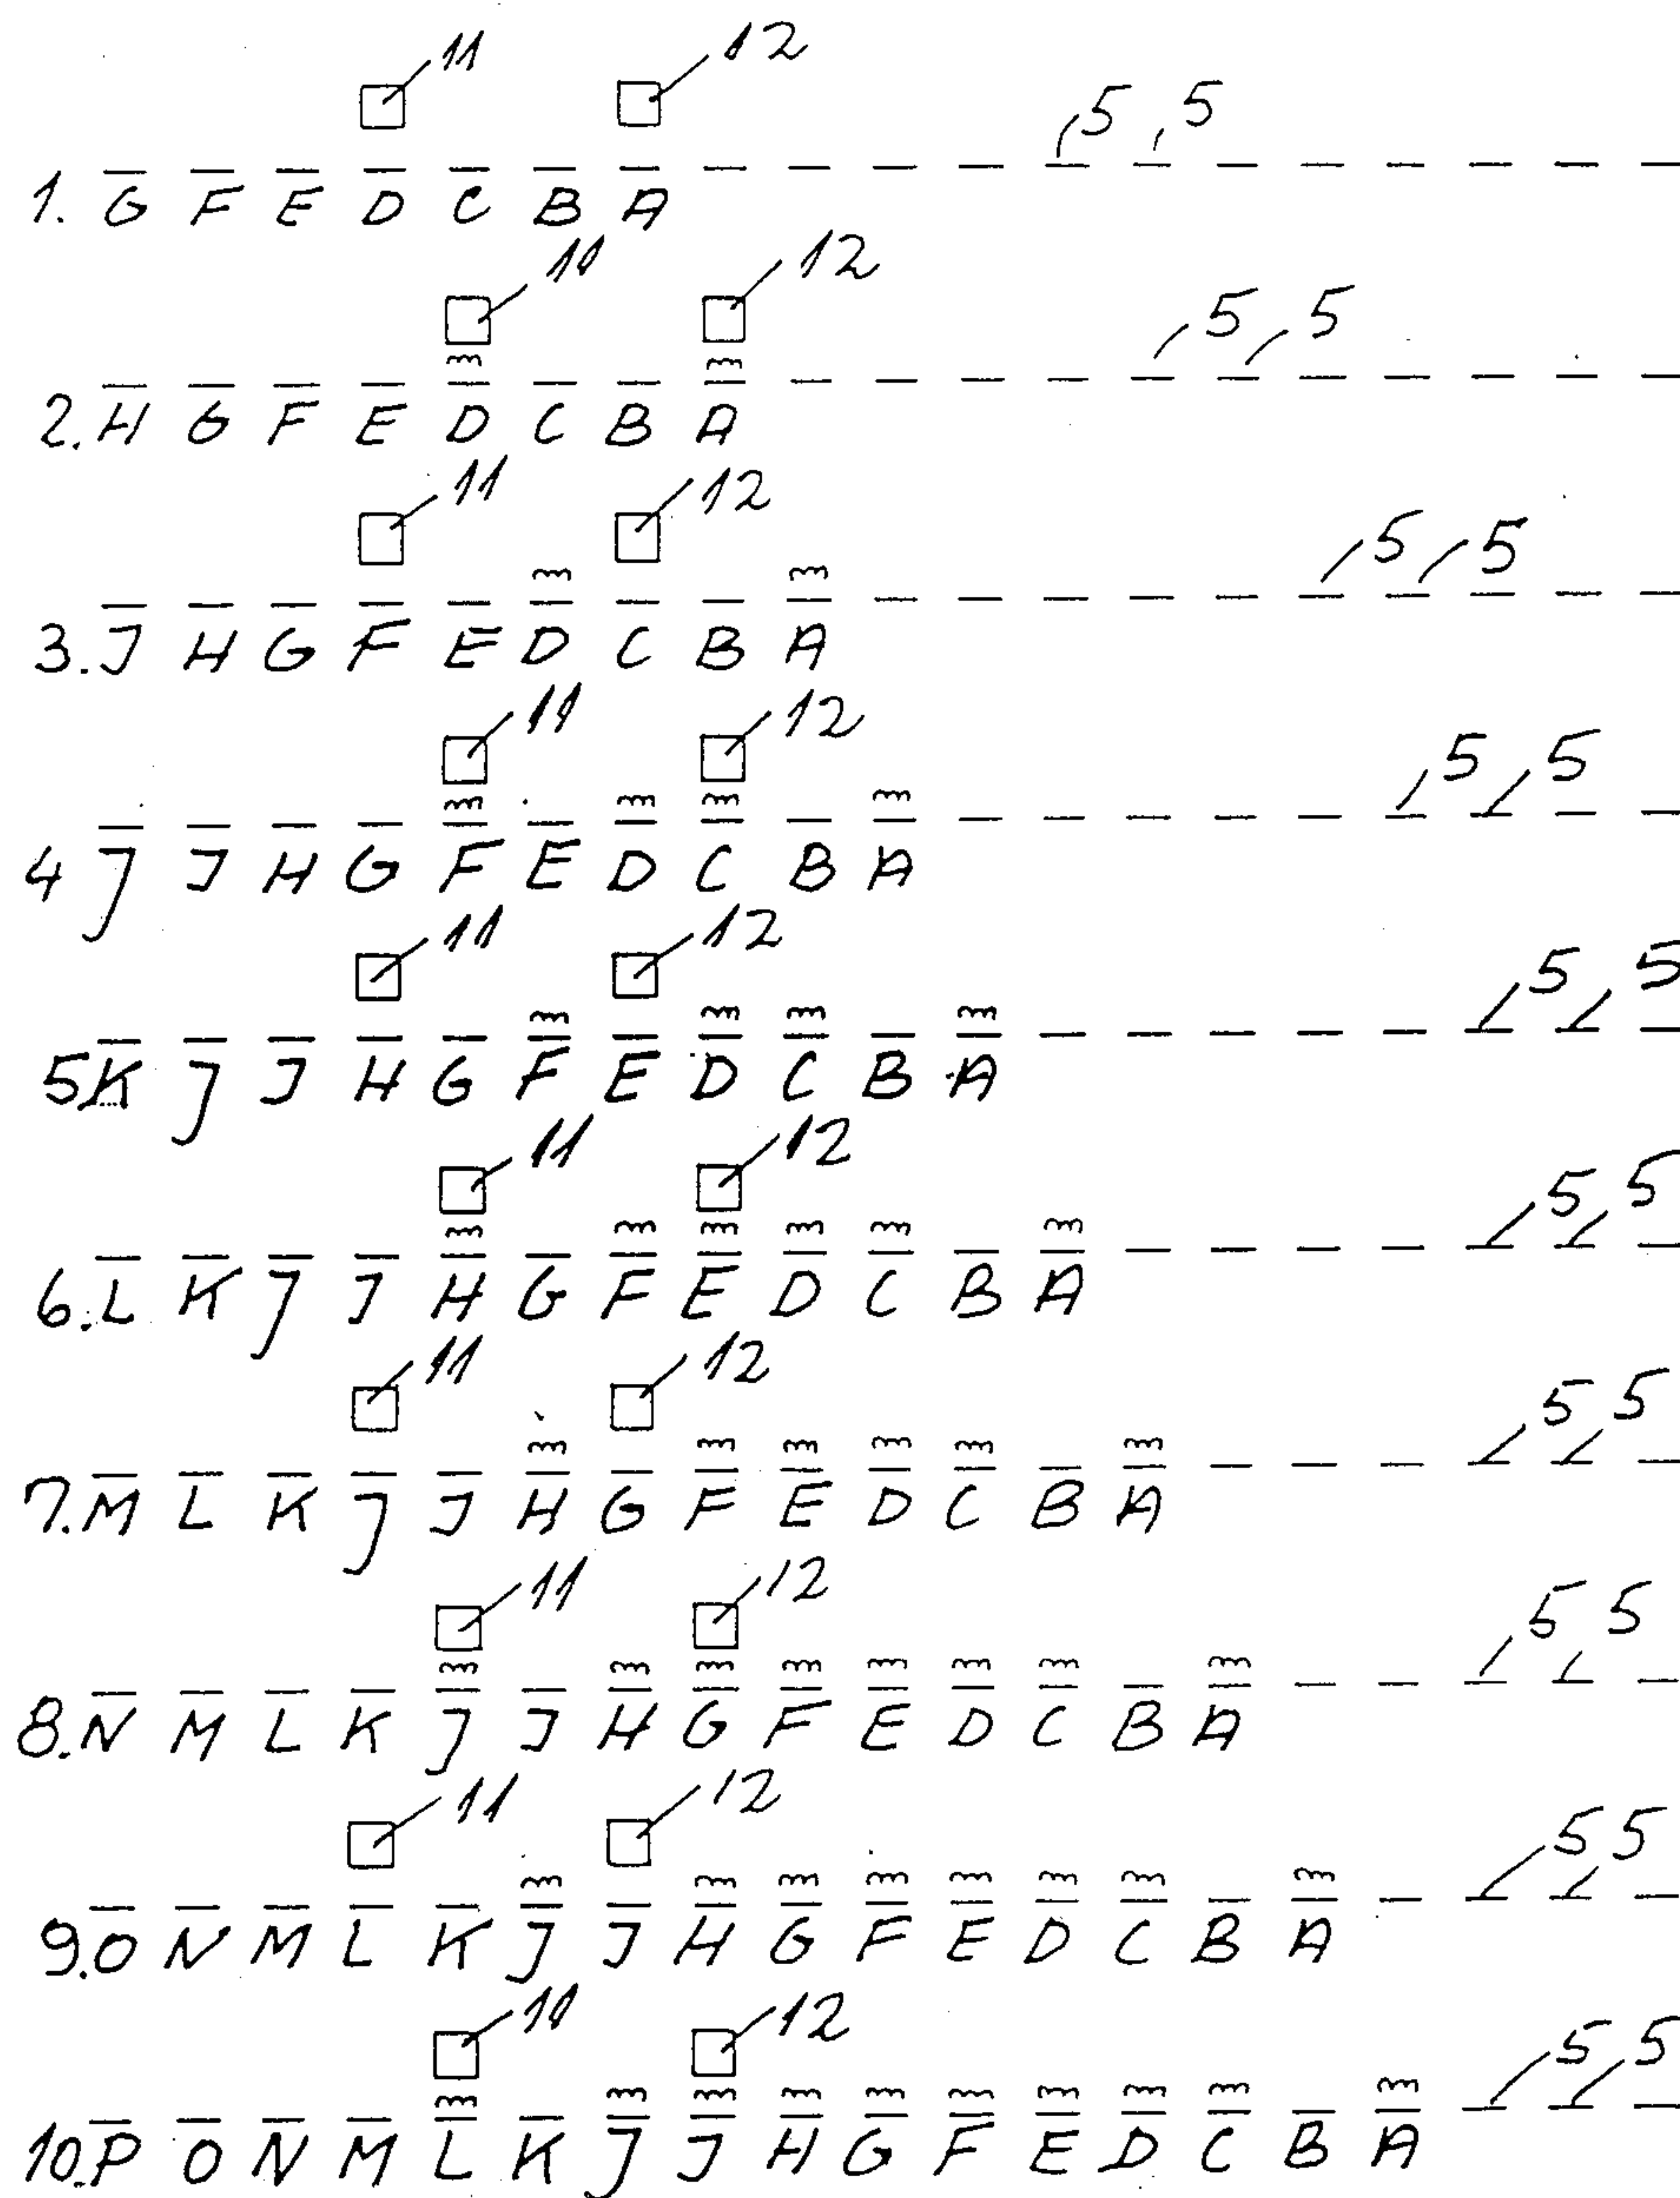 11 12 5 5
1. G F E D C B A
10 12 5 5
2. H G F E D C B A
11 12 5 5
3. J H G F E D C B A
11 12 5 5
4 J J H G F E D C B A
11 12 5 5
5 K J J H G F E D C B A
11 12 5 5
6. L K J J H G F E D C B A
11 12 5 5
7. M L K J J H G F E D C B A
11 12 5 5
8. N M L K J J H G F E D C B A
11 12 5 5
9. O N M L K J J H G F E D C B A
10 12 5 5
10. P O N M L K J J H G F E D C B A